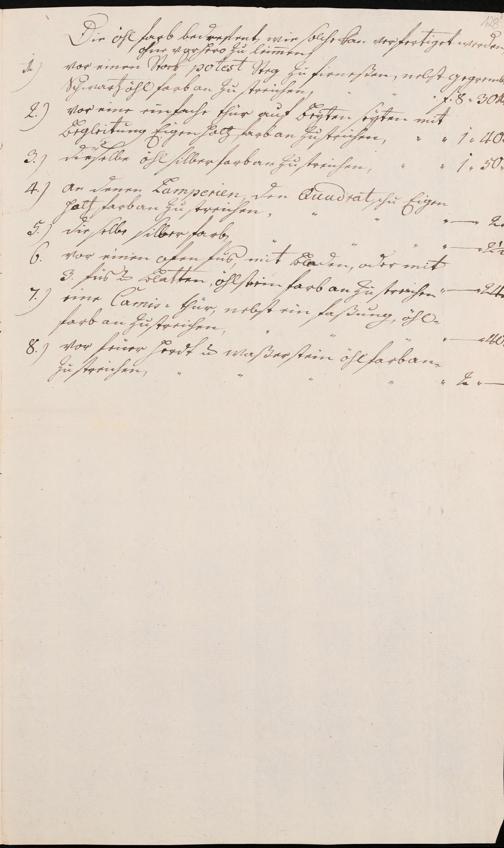 Die öhl farb bedrefent, wie solche kan verfertiget werden
ohne vorhero zu leimen
1.) vor einen Stock potest Steg zu firneßen, nebst
Schwartz öhl farb an zu streichen, f. 8 " 30
2.) vor eine einfache thür auf beyten seyten mit
begleitung Eigen holtz farb an zu streichen, " " 1 " 40
3.) dieselbe öhl silber farb an zu streichen, " " 1 " 50
4.) an denen Lamperien, den Quadrat schu Eigen
holtz farb an zu streichen, " " " — 2
5.) dieselbe silber farb, " " — 2½
6. vor einen ofen fus, mit Boden, oder mit
3. füs u Blatten, öhl stein farb an zu streichen " — 24
7.) eine Camin thür, nebst ein faßung, öhl
farb an zu streichen, " " " — 40
8.) vor feuer herdt u waßerstein öhl farb an
zu streichen, " " " " " 2 " —